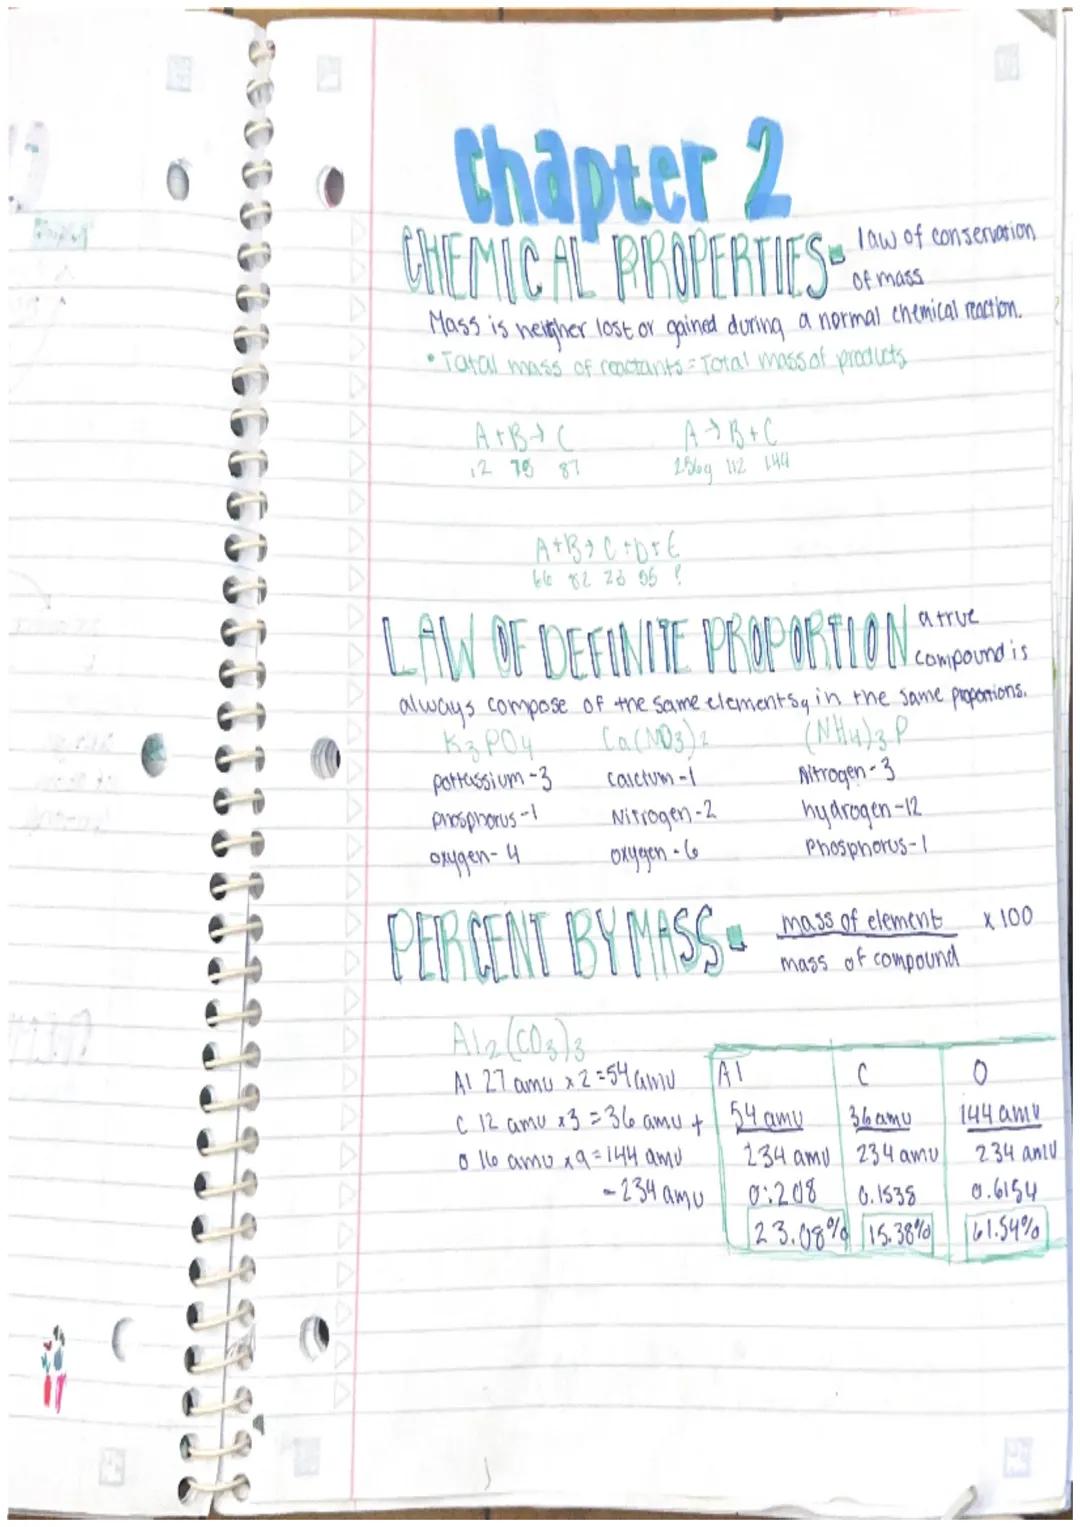 Chapter 2
CHEMICAL PROPERTIES- law of conservation
of mass
Mass is neither lost or gained during a normal chemical reaction.
• Total mass of reactants = Total mass of products
A+B→ C A→ B+C
12 75 87 256g 112 144
A+B→ C+D+E
66 82 23 55 ?
LAW OF DEFINITE PROPORTION a true
compound is
always compose of the same elements, in the same proportions.
K₃PO₄ Ca(NO₃)₂ (NH₄)₃P
pottassium-3 calcium-1 Nitrogen-3
phosphorus-1 Nitrogen-2 hydrogen-12
oxygen-4 oxygen-6 Phosphorus-1
PERCENT BY MASS- mass of element x 100
mass of compound
Al₂(CO₃)₃
Al 27 amu x2=54 amu
C 12 amu x3=36 amu +
O 16 amu x9=144 amu
-234 amu
Al C O
54 amu 36 amu 144 amu
234 amu 234 amu 234 amu
0.208 0.1538 0.6154
23.08% 15.38% 61.54%